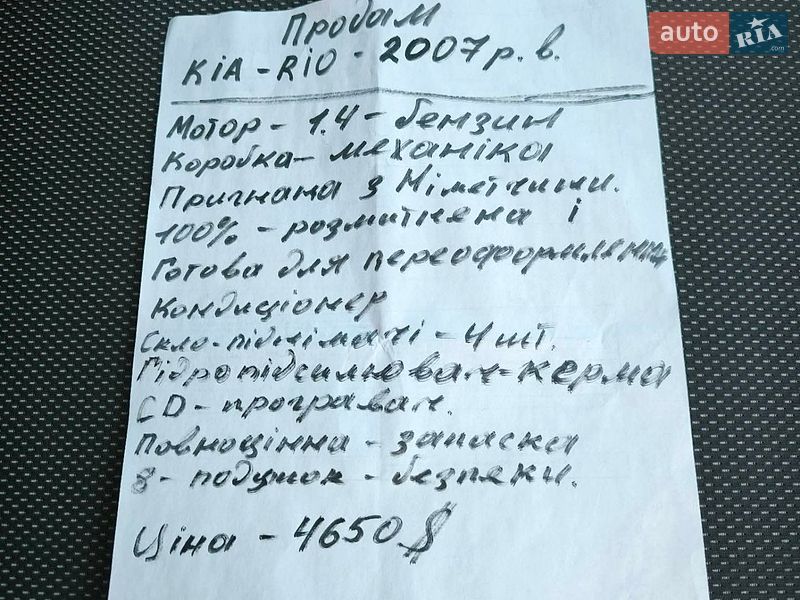 Продам
KIA - RIO - 2007 р. в.
Мотор - 1.4 - бензин
Коробка - механіка
Пригнана з Німетчини.
100% - розмитнена і
Готова для переоформлення
Кондиціонер
Скло-піднімачі - 4 шт.
Гідропідсилювач - керма
CD - програвач.
Повноцінна - запаска
8 - подушок - безпеки.
Ціна - 4650 $
auto RIA .com